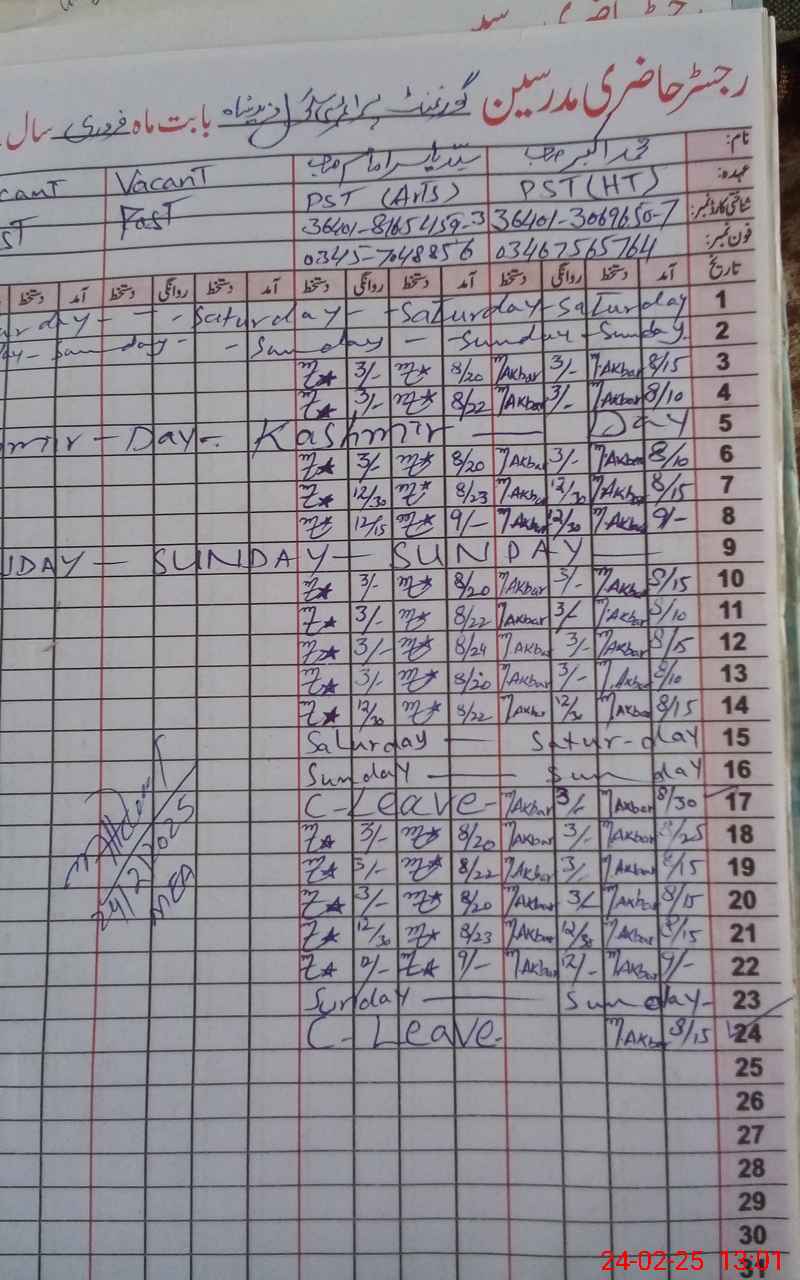 رجسٹر حاضری مدرسین گورنمنٹ پرائمری سکول بابت ماہ فروری سال
نام: محمد اکبر صاحب سید یاسر امام صاحب Vacant cant
عہدہ: PST (HT) PST (Arts) Post ST
شناختی کارڈ نمبر: 36401-3069650-7 36401-8165459-3
فون نمبر: 03467565764 0345-7048856
تاریخ آمد دستخط روانگی دستخط آمد دستخط روانگی دستخط آمد دستخط روانگی دستخط آمد دستخط
1 Saturday - Saturday - Saturday - urday -
2 Sunday - Sunday - Sunday - Sunday - ay
3 8/15 M.Akbar 3/- M.Akbar 8/20 3/-
4 8/10 M.Akbar 3/- M.Akbar 8/22 3/-
5 mir - Day - Kashmir — Day
6 8/10 M.Akbar 3/- M.Akbar 8/20 3/-
7 8/15 M.Akbar 12/30 M.Akbar 8/23 12/30
8 9/- M.Akbar 12/30 M.Akbar 9/- 12/15
9 NDAY — SUNDAY — SUNDAY —
10 8/15 M.Akbar 3/- M.Akbar 8/20 3/-
11 8/10 M.Akbar 3/- M.Akbar 8/22 3/-
12 8/15 M.Akbar 3/- M.Akbar 8/24 3/-
13 8/10 M.Akbar 3/- M.Akbar 8/20 3/-
14 8/15 M.Akbar 12/30 M.Akbar 8/22 12/30
15 Saturday — Satur-day
16 Sunday — Sunday
17 8/30 M.Akbar 3/- M.Akbar C-Leave-
18 8/25 M.Akbar 3/- M.Akbar 8/20 3/-
19 8/15 M.Akbar 3/- M.Akbar 8/22 3/-
20 8/15 M.Akbar 3/- M.Akbar 8/20 3/-
21 8/15 M.Akbar 12/30 M.Akbar 8/23 12/30
22 9/- M.Akbar 12/- M.Akbar 9/-
23 Sunday — Sunday-
24 8/15 M.Akbar C-Leave-
24/2/2025
MEA
25
26
27
28
29
30
31
24-02-25 13:01